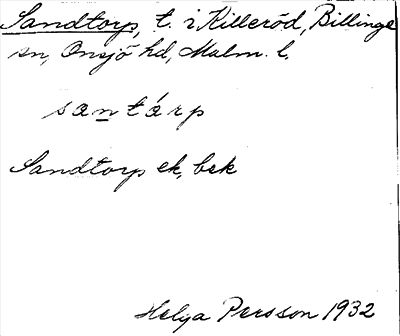 Sandtorp, t. i Killeröd, Billinge
sn, Onsjö hd, Malm. l.
santárp
Sandtorp ek, bek
Helga Persson 1932